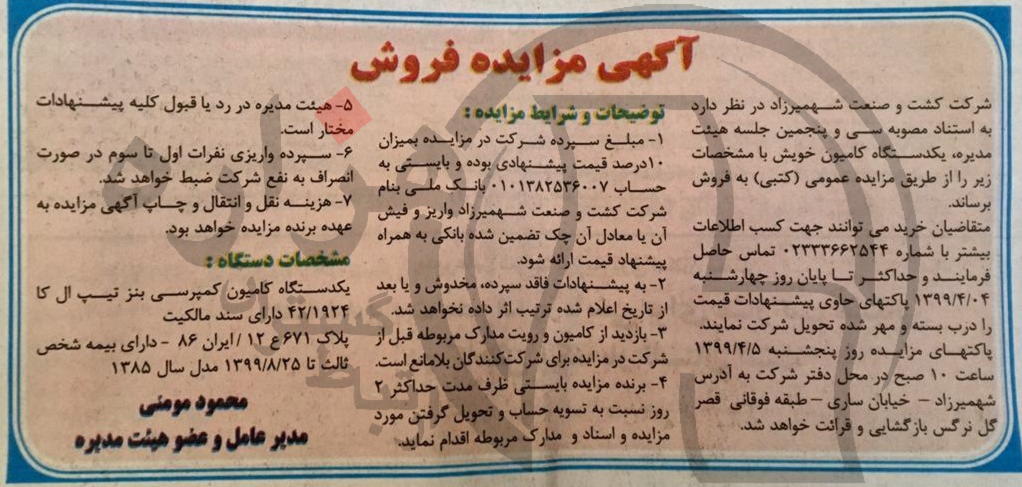 آگهی مزایده فروش
شرکت کشت و صنعت شهمیرزاد در نظر دارد
به استناد مصوبه سی و پنجمین جلسه هیئت
مدیره، یکدستگاه کامیون خویش با مشخصات
زیر را از طریق مزایده عمومی (کتبی) به فروش
برساند.
متقاضیان خرید می توانند جهت کسب اطلاعات
بیشتر با شماره ۰۲۳۳۳۶۶۲۵۴۴ تماس حاصل
فرمایند و حداکثر تا پایان روز چهارشنبه
۱۳۹۹/۴/۰۴ پاکتهای حاوی پیشنهادات قیمت
را درب بسته و مهر شده تحویل شرکت نمایند.
پاکتهای مزایده روز پنجشنبه ۱۳۹۹/۴/۵
ساعت ۱۰ صبح در محل دفتر شرکت به آدرس
شهمیرزاد – خیابان ساری – طبقه فوقانی قصر
گل نرگس بازگشایی و قرائت خواهد شد.
توضیحات و شرایط مزایده :
۱- مبلغ سپرده شرکت در مزایده بمیزان
۱۰درصد قیمت پیشنهادی بوده و بایستی به
حساب ۰۱۰۱۳۸۲۵۳۶۰۰۷ بانک ملی بنام
شرکت کشت و صنعت شهمیرزاد واریز و فیش
آن یا معادل آن چک تضمین شده بانکی به همراه
پیشنهاد قیمت ارائه شود.
۲- به پیشنهادات فاقد سپرده، مخدوش و یا بعد
از تاریخ اعلام شده ترتیب اثر داده نخواهد شد.
۳- بازدید از کامیون و رویت مدارک مربوطه قبل از
شرکت در مزایده برای شرکت‌کنندگان بلامانع است.
۴- برنده مزایده بایستی ظرف مدت حداکثر ۲
روز نسبت به تسویه حساب و تحویل گرفتن مورد
مزایده و اسناد و مدارک مربوطه اقدام نماید.
۵- هیئت مدیره در رد یا قبول کلیه پیشنهادات
مختار است.
۶- سپرده واریزی نفرات اول تا سوم در صورت
انصراف به نفع شرکت ضبط خواهد شد.
۷- هزینه نقل و انتقال و چاپ آگهی مزایده به
عهده برنده مزایده خواهد بود.
مشخصات دستگاه :
یکدستگاه کامیون کمپرسی بنز تیپ ال کا
۴۲/۱۹۲۴ دارای سند مالکیت
پلاک ۶۷۱ ع ۱۲ / ایران ۸۶ - دارای بیمه شخص
ثالث تا ۱۳۹۹/۸/۲۵ مدل سال ۱۳۸۵
محمود مومنی
مدیر عامل و عضو هیئت مدیره